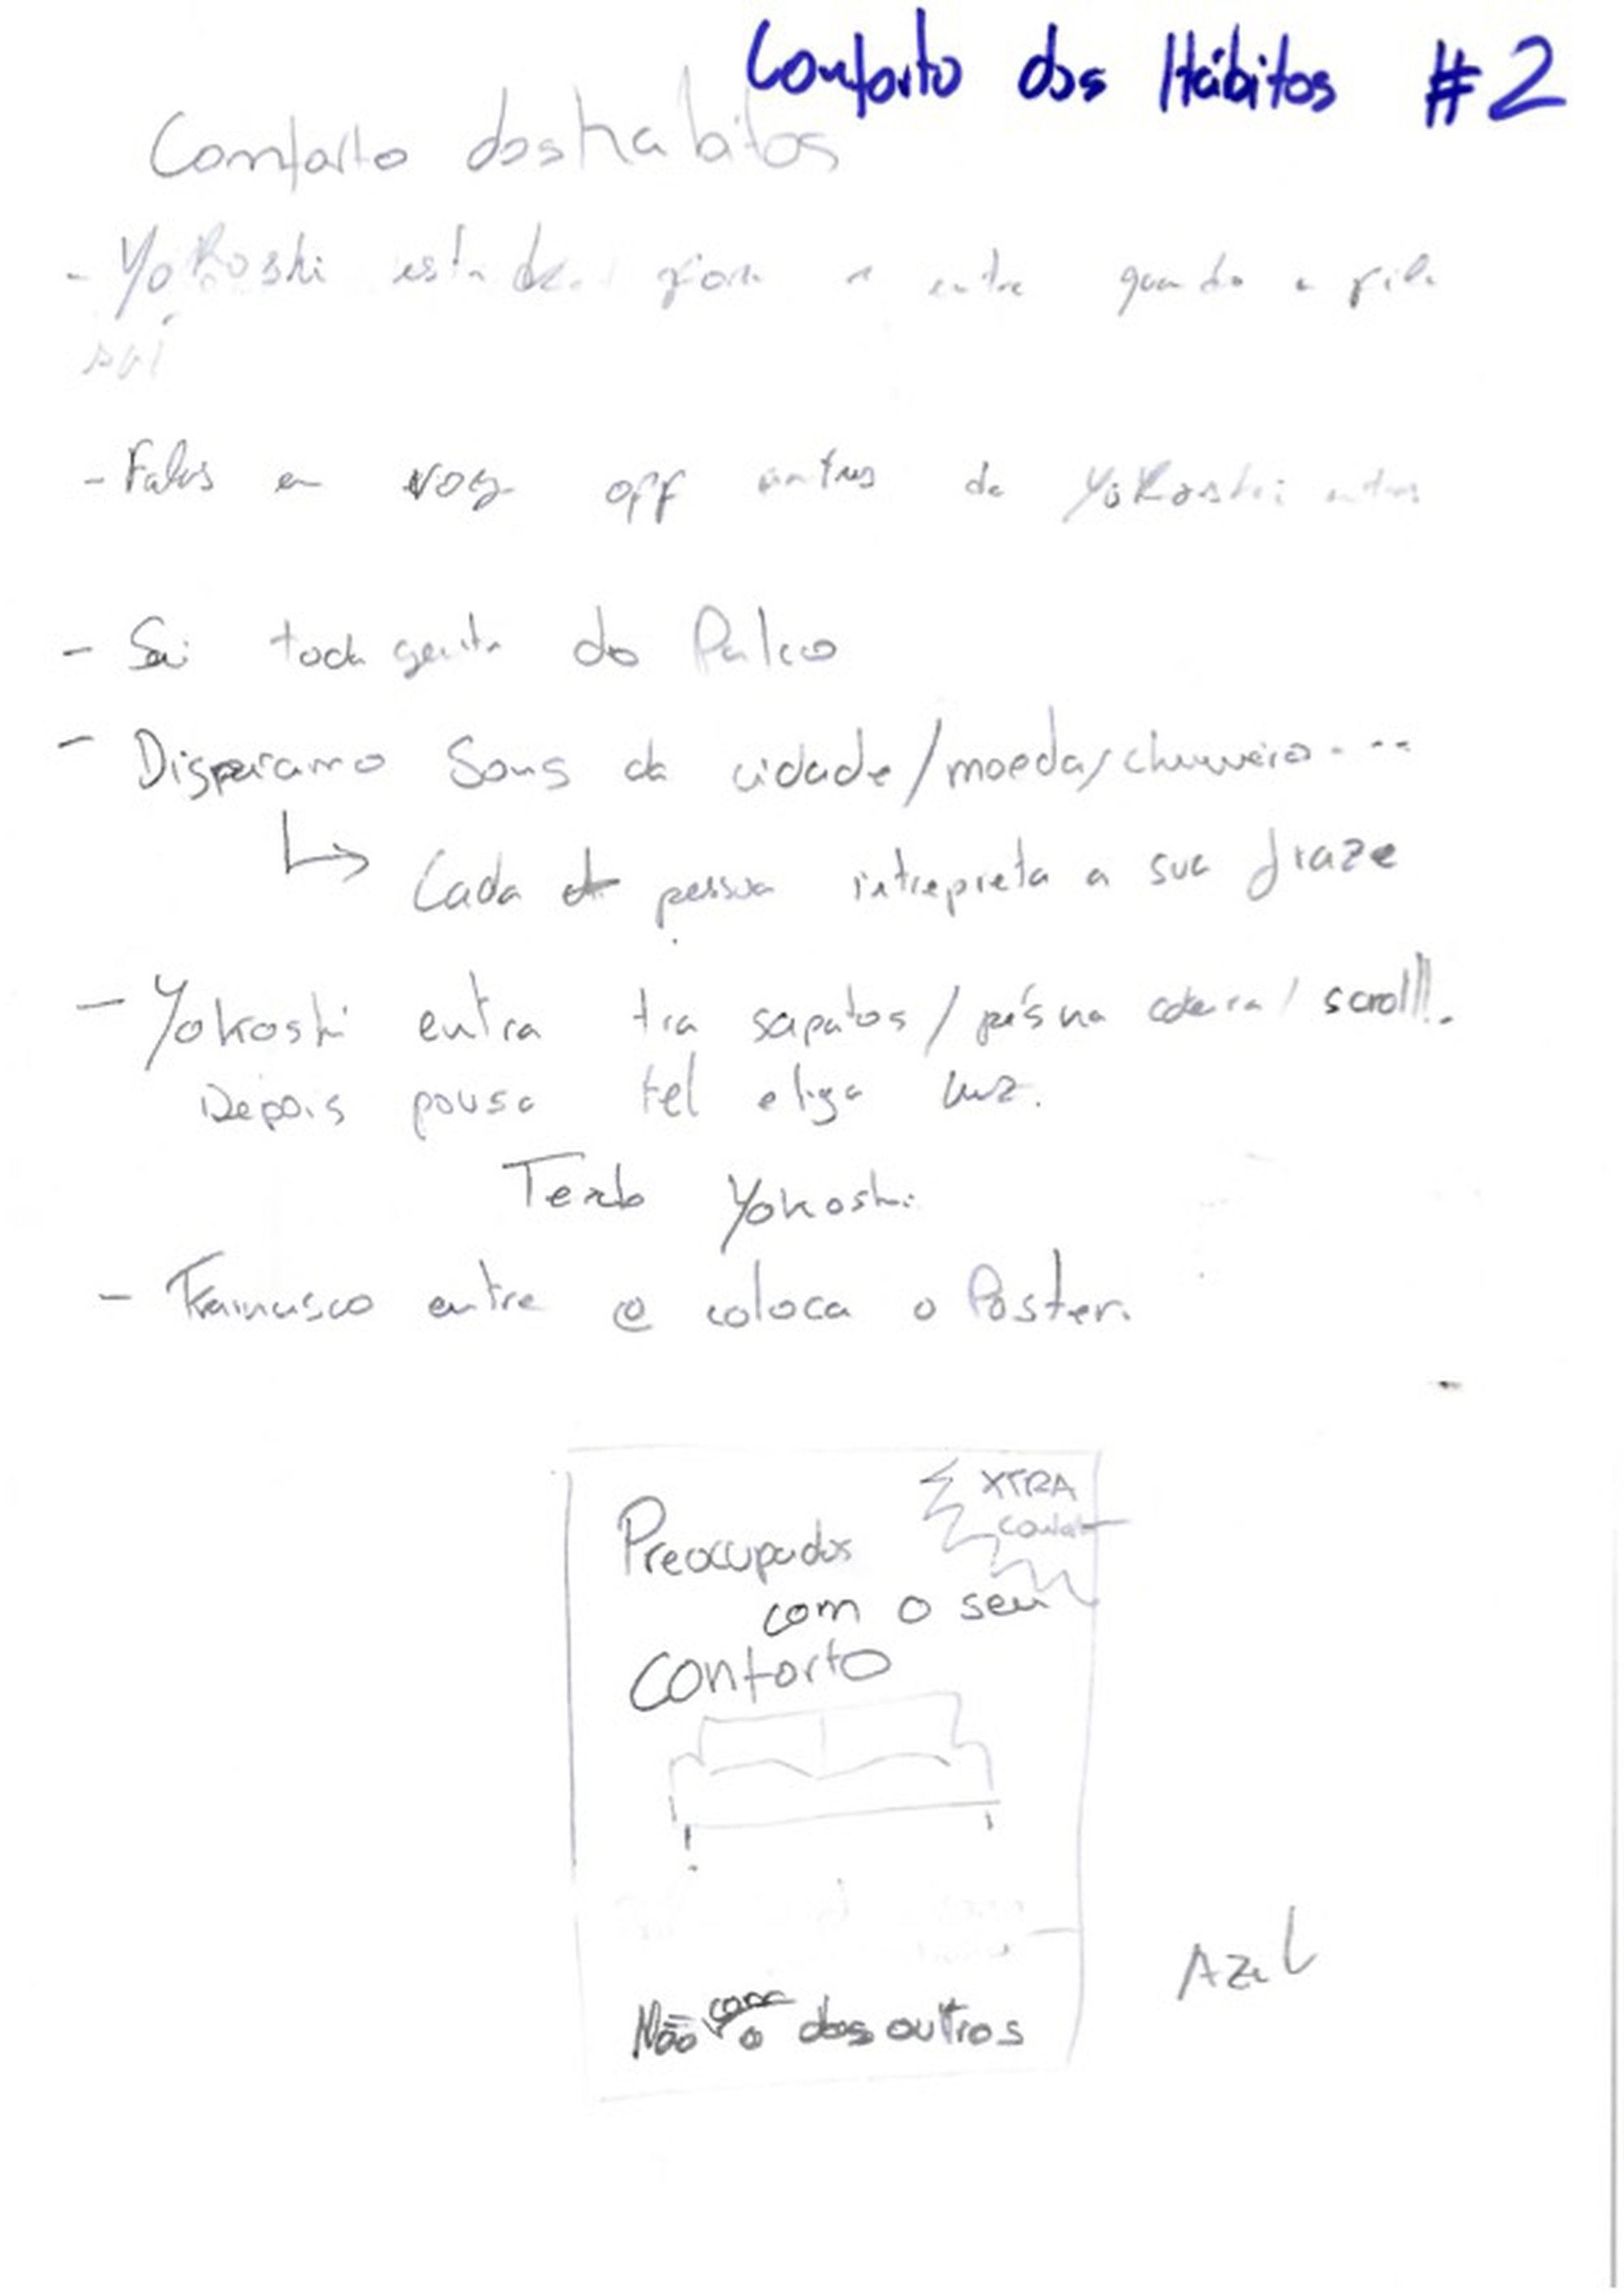 Conforto dos Hábitos #2
Comforto dos habitos
- Yokoshi está de fora e entra quando a fila
sai
- Falas em voz off antes de Yokoshi entrar
- Sai toda gente do Palco
- Disparamo Sons da cidade/moeda/chuveiro....
↳ Cada pessoa intrepreta a sua fraze
- Yokoshi entra tira sapatos / pés na cadeira / scroll!!.
Depois pousa tel e liga luz.
Texto Yokoshi
- Framcisco entre e coloca o Poster.
XTRA
Preocupados
com o seu
Conforto
Não com o dos outros
Azul